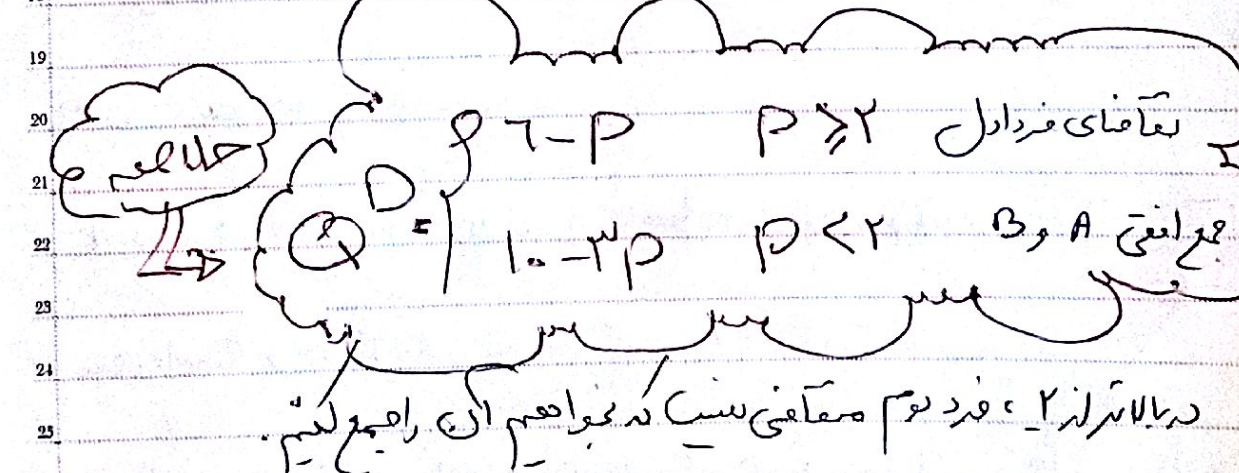 19
20
21
22
23
24
25
خلاصه
Q^D = { ۶-P P⩾۲ تقاضای فرد اول
۱۰-۳P P<۲ جمع افقی A و B
در بالاتر از ۲، فرد دوم متقاضی نیست که بخواهیم آن را جمع کنیم.